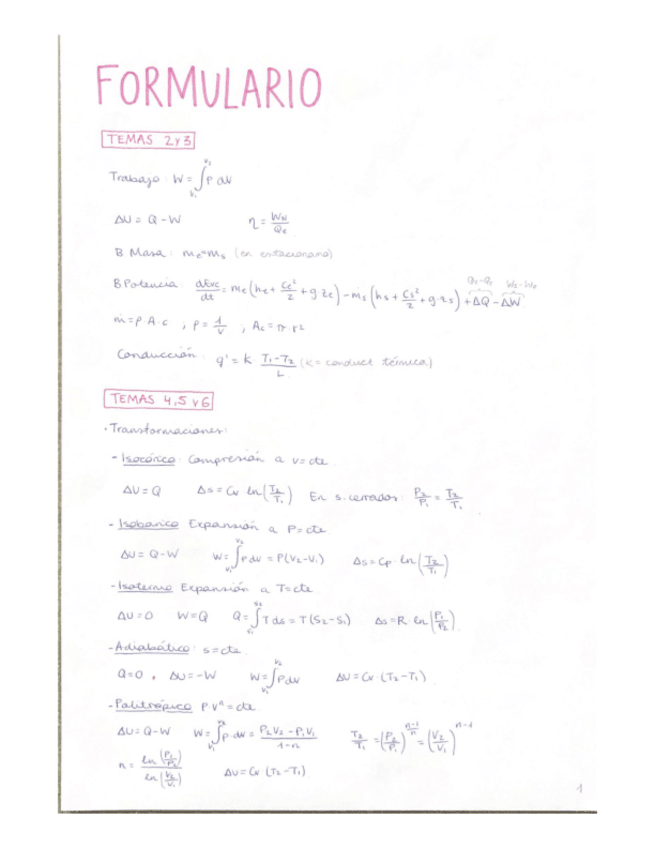 FORMULARIO
TEMAS 2 y 3
Trabajo: W = ∫_{V₁}^{V₂} P dV
ΔU = Q - W    η = W_N / Q_c
B Masa: ṁe = ṁs (en estacionario)
B Potencia: dEvc/dt = ṁe (he + Ce²/2 + g·ze) - ṁs (hs + Cs²/2 + g·zs) + ΔQ - ΔW
ṁ = ρ·A·c ; ρ = 1/V ; Ac = π·r²
Conducción: q' = k · (T₁-T₂)/L (k = conduct térmica)
TEMAS 4,5 y 6
· Transformaciones:
- Isocórico: Compresión a v=cte.
ΔU = Q    Δs = Cv · ln(T₂/T₁)    En s. cerrados: P₂/P₁ = T₂/T₁
- Isobárico Expansión a P=cte
ΔU = Q-W    W = ∫_{V₁}^{V₂} P dv = P(V₂-V₁)    Δs = Cp · ln(T₂/T₁)
- Isotermo Expansión a T=cte
ΔU = 0    W = Q    Q = ∫_{S₁}^{S₂} T ds = T(S₂-S₁)    Δs = R · ln(P₁/P₂)
- Adiabático: s=cte
Q=0 , ΔU = -W    W = ∫_{V₁}^{V₂} P dV    ΔU = Cv · (T₂-T₁)
- Politrópico P·Vⁿ = cte
ΔU = Q-W    W = ∫_{V₁}^{V₂} P·dV = (P₂V₂ - P₁V₁)/(1-n)    T₂/T₁ = (P₂/P₁)^{(n-1)/n} = (V₂/V₁)^{n-1}
n = ln(P₁/P₂) / ln(V₂/V₁)    ΔU = Cv · (T₂-T₁)
1